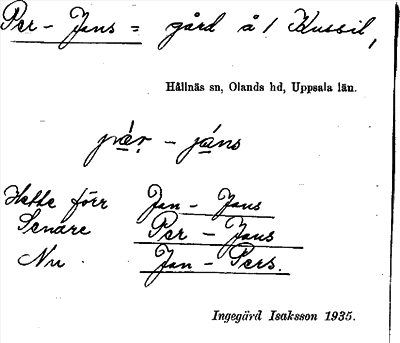 Per - Jans = gård å / Kussil,
Hållnäs sn, Olands hd, Uppsala län.
pǟr. - jáns
Hette förr Jan - Jans
Senare Per - Jans
Nu Jan - Pers.
Ingegärd Isaksson 1935.